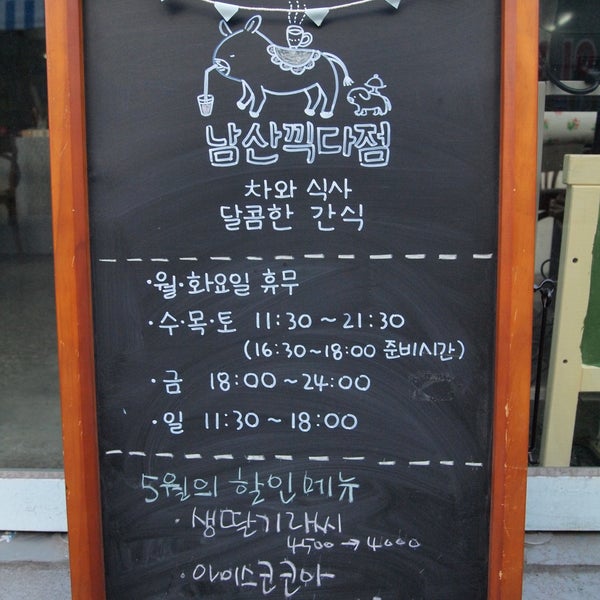 남산끽다점
차와 식사
달콤한 간식
·월·화요일 휴무
·수·목·토 11:30~21:30
(16:30~18:00 준비시간)
·금 18:00~24:00
·일 11:30~18:00
5월의 할인메뉴
·생딸기라씨
4500→4000
·아이스코코아